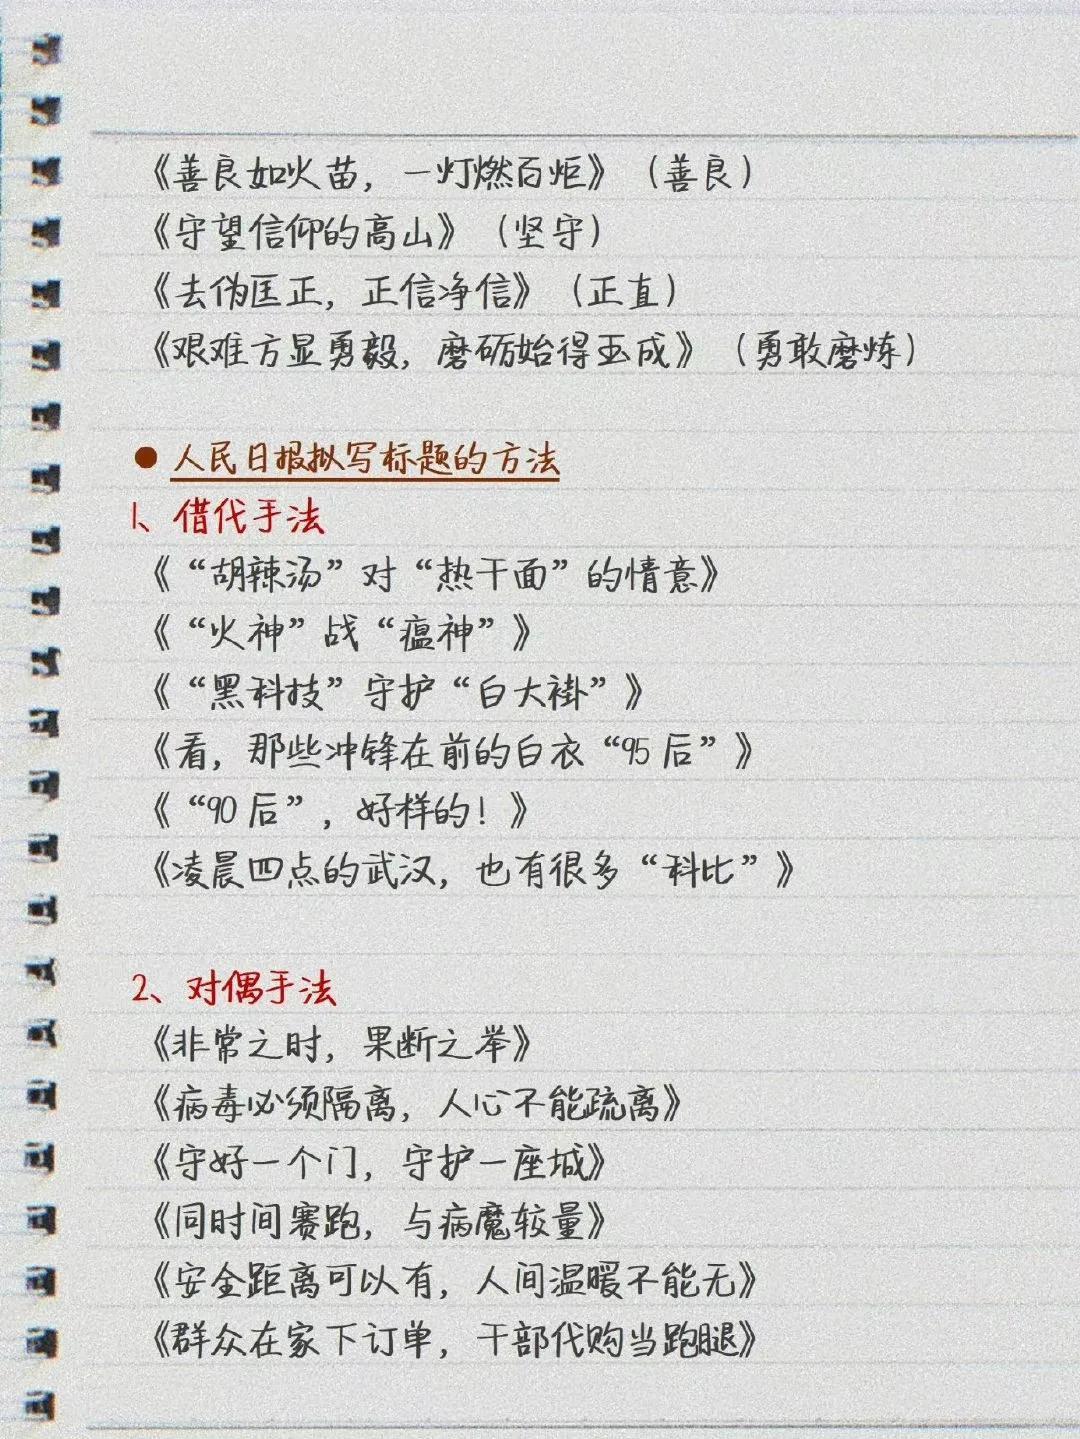 《善良如火苗，一灯燃百炬》（善良）
《守望信仰的高山》（坚守）
《去伪匡正，正信净信》（正直）
《艰难方显勇毅，磨砺始得玉成》（勇敢磨炼）
●人民日报拟写标题的方法
1、借代手法
《“胡辣汤”对“热干面”的情意》
《“火神”战“瘟神”》
《“黑科技”守护“白大褂”》
《看，那些冲锋在前的白衣“95后”》
《“90后”，好样的！》
《凌晨四点的武汉，也有很多“科比”》
2、对偶手法
《非常之时，果断之举》
《病毒必须隔离，人心不能疏离》
《守好一个门，守护一座城》
《同时间赛跑，与病魔较量》
《安全距离可以有，人间温暖不能无》
《群众在家下订单，干部代购当跑腿》